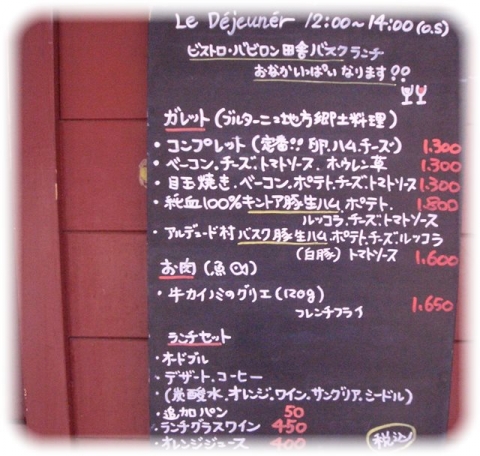 Le Déjeunér 12:00~14:00(o.s)
ビストロ・バビロン 田舎バスクランチ
おなかいっぱいなります!!
ガレット(ブルターニュ地方郷土料理)
・コンプレット(定番!! 卵.ハム.チーズ) 1.300
・ベーコン.チーズ.トマトソース.ホウレン草 1.300
・目玉焼き.ベーコン.ポテト.チーズ.トマトソース 1.300
・純血100%キントア豚生ハム.ポテト. 1.800
ルッコラ.チーズ.トマトソース
・アルデュード村バスク豚生ハム.ポテト.チーズ.ルッコラ
(白豚)トマトソース 1.600
お肉(魚)
・牛カイノミのグリエ(120g) 1.650
フレンチフライ
ランチセット
・オードブル
・デザート.コーヒー
・(炭酸水.オレンジ.ワイン.サングリア.シードル)
・追加パン 50
・ランチグラスワイン 450
・オレンジジュース 400
税込